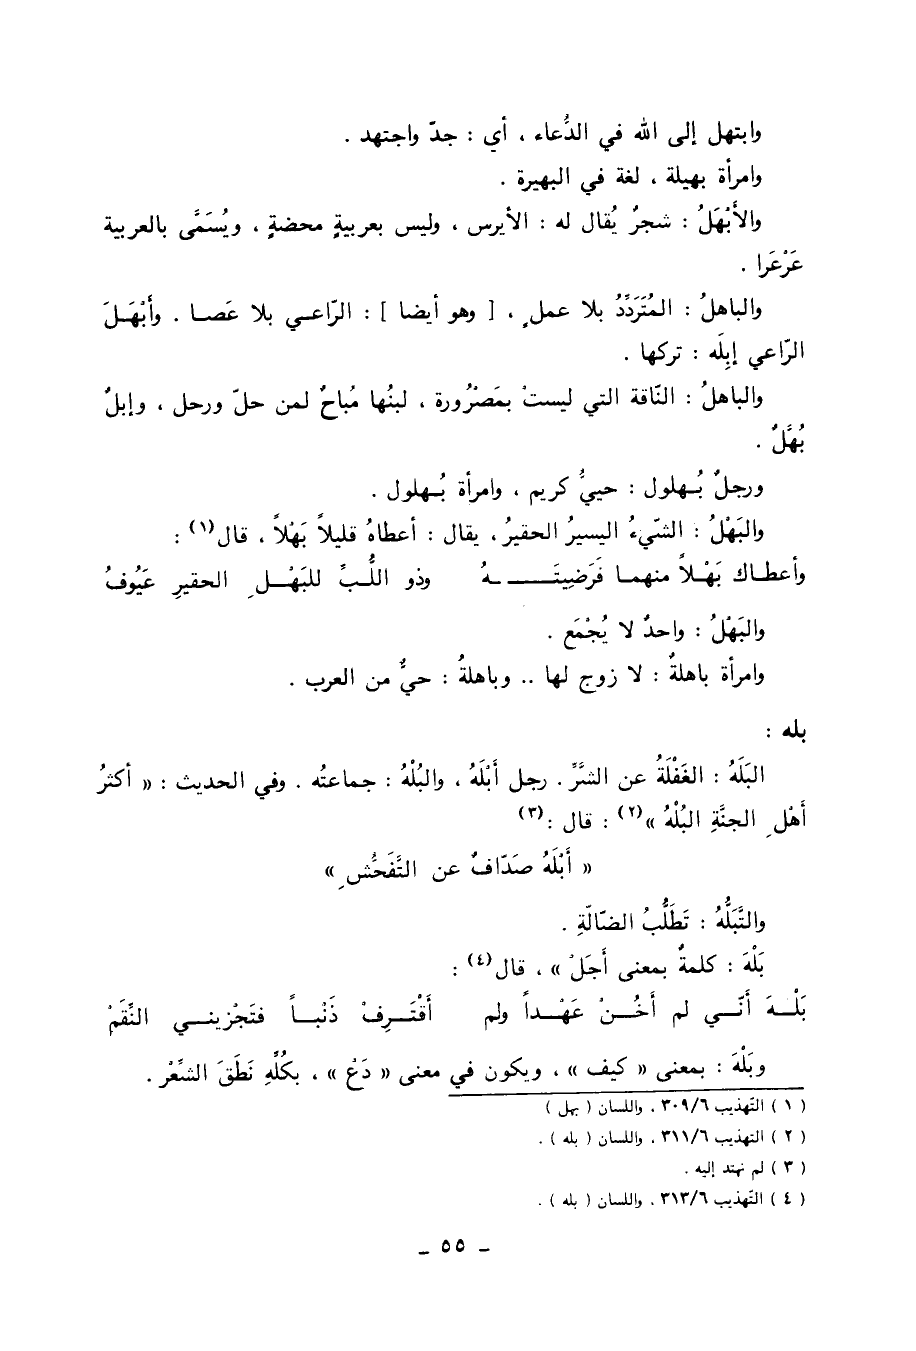 وابتهل إلى الله في الدُّعاء ، أي : جدّ واجتهد .
وامرأة بهيلة ، لغة في البهيرة .
والأَبْهَلُ : شجرٌ يُقال له : الأيرس ، وليس بعربيةٍ محضةٍ ، ويُسَمَّى بالعربية
عَرْعَرا .
والباهلُ : المُتَرَدِّدُ بلا عملٍ ، [ وهو أيضا ] : الرّاعي بلا عَصا . وأَبْهَلَ
الرّاعي إبِلَه : تركها .
والباهلُ : النّاقة التي ليستْ بمَصْرُورة ، لبنُها مُباحٌ لمن حلّ ورحل ، وإبلٌ
بُهَّلٌ .
ورجلٌ بُهلول : حييٌّ كريم ، وامرأة بُهلول .
والبَهْلُ : الشّيءُ اليسيرُ الحقيرُ، يقال : أعطاهُ قليلاً بَهْلاً ، قال(١) :
وأعطاك بَهْلاً منهما فَرَضِيتَـهُ    وذو اللُّبِّ للبَهْلِ الحقيرِ عَيُوفُ
والبَهْلُ : واحدٌ لا يُجْمَع .
وامرأة باهلةٌ : لا زوج لها .. وباهلةُ : حيٌّ من العرب .
بله :
البَلَهُ : الغَفْلَةُ عن الشرَِّ . رجل أَبْلَهُ ، والبُلْهُ : جماعتُه . وفي الحديث : « أكثرُ
أَهْلِ الجنَّةِ البُلْهُ »(٢) : قال :(٣)
« أَبْلَهُ صَدّافٌ عن التَّفَحُّشِ »
والتَّبَلُّهُ : تَطَلُّبُ الضّالّةِ .
بَلْهَ : كلمةٌ بمعنى أَجَلْ » ، قال(٤) :
بَلْـهَ أَنّـي لم أَخُـنْ عَهْـداً ولم    أَقْتَـرِفْ ذَنْبـاً فتَجْزِينـي النِّقَمْ
وبَلْهَ : بمعنى « كيف » ، ويكون في معنى « دَعْ » ، بكُلٍّ نَطَقَ الشِّعْر .
( ١ ) التّهذيب ٣٠٩/٦ ، واللسان ( بهل )
( ٢ ) التهذيب ٣١١/٦ ، واللسان ( بله ) .
( ٣ ) لم نهتد إليه .
( ٤ ) التّهذيب ٣١٣/٦ ، واللسان ( بله ) .
ـ ٥٥ ـ